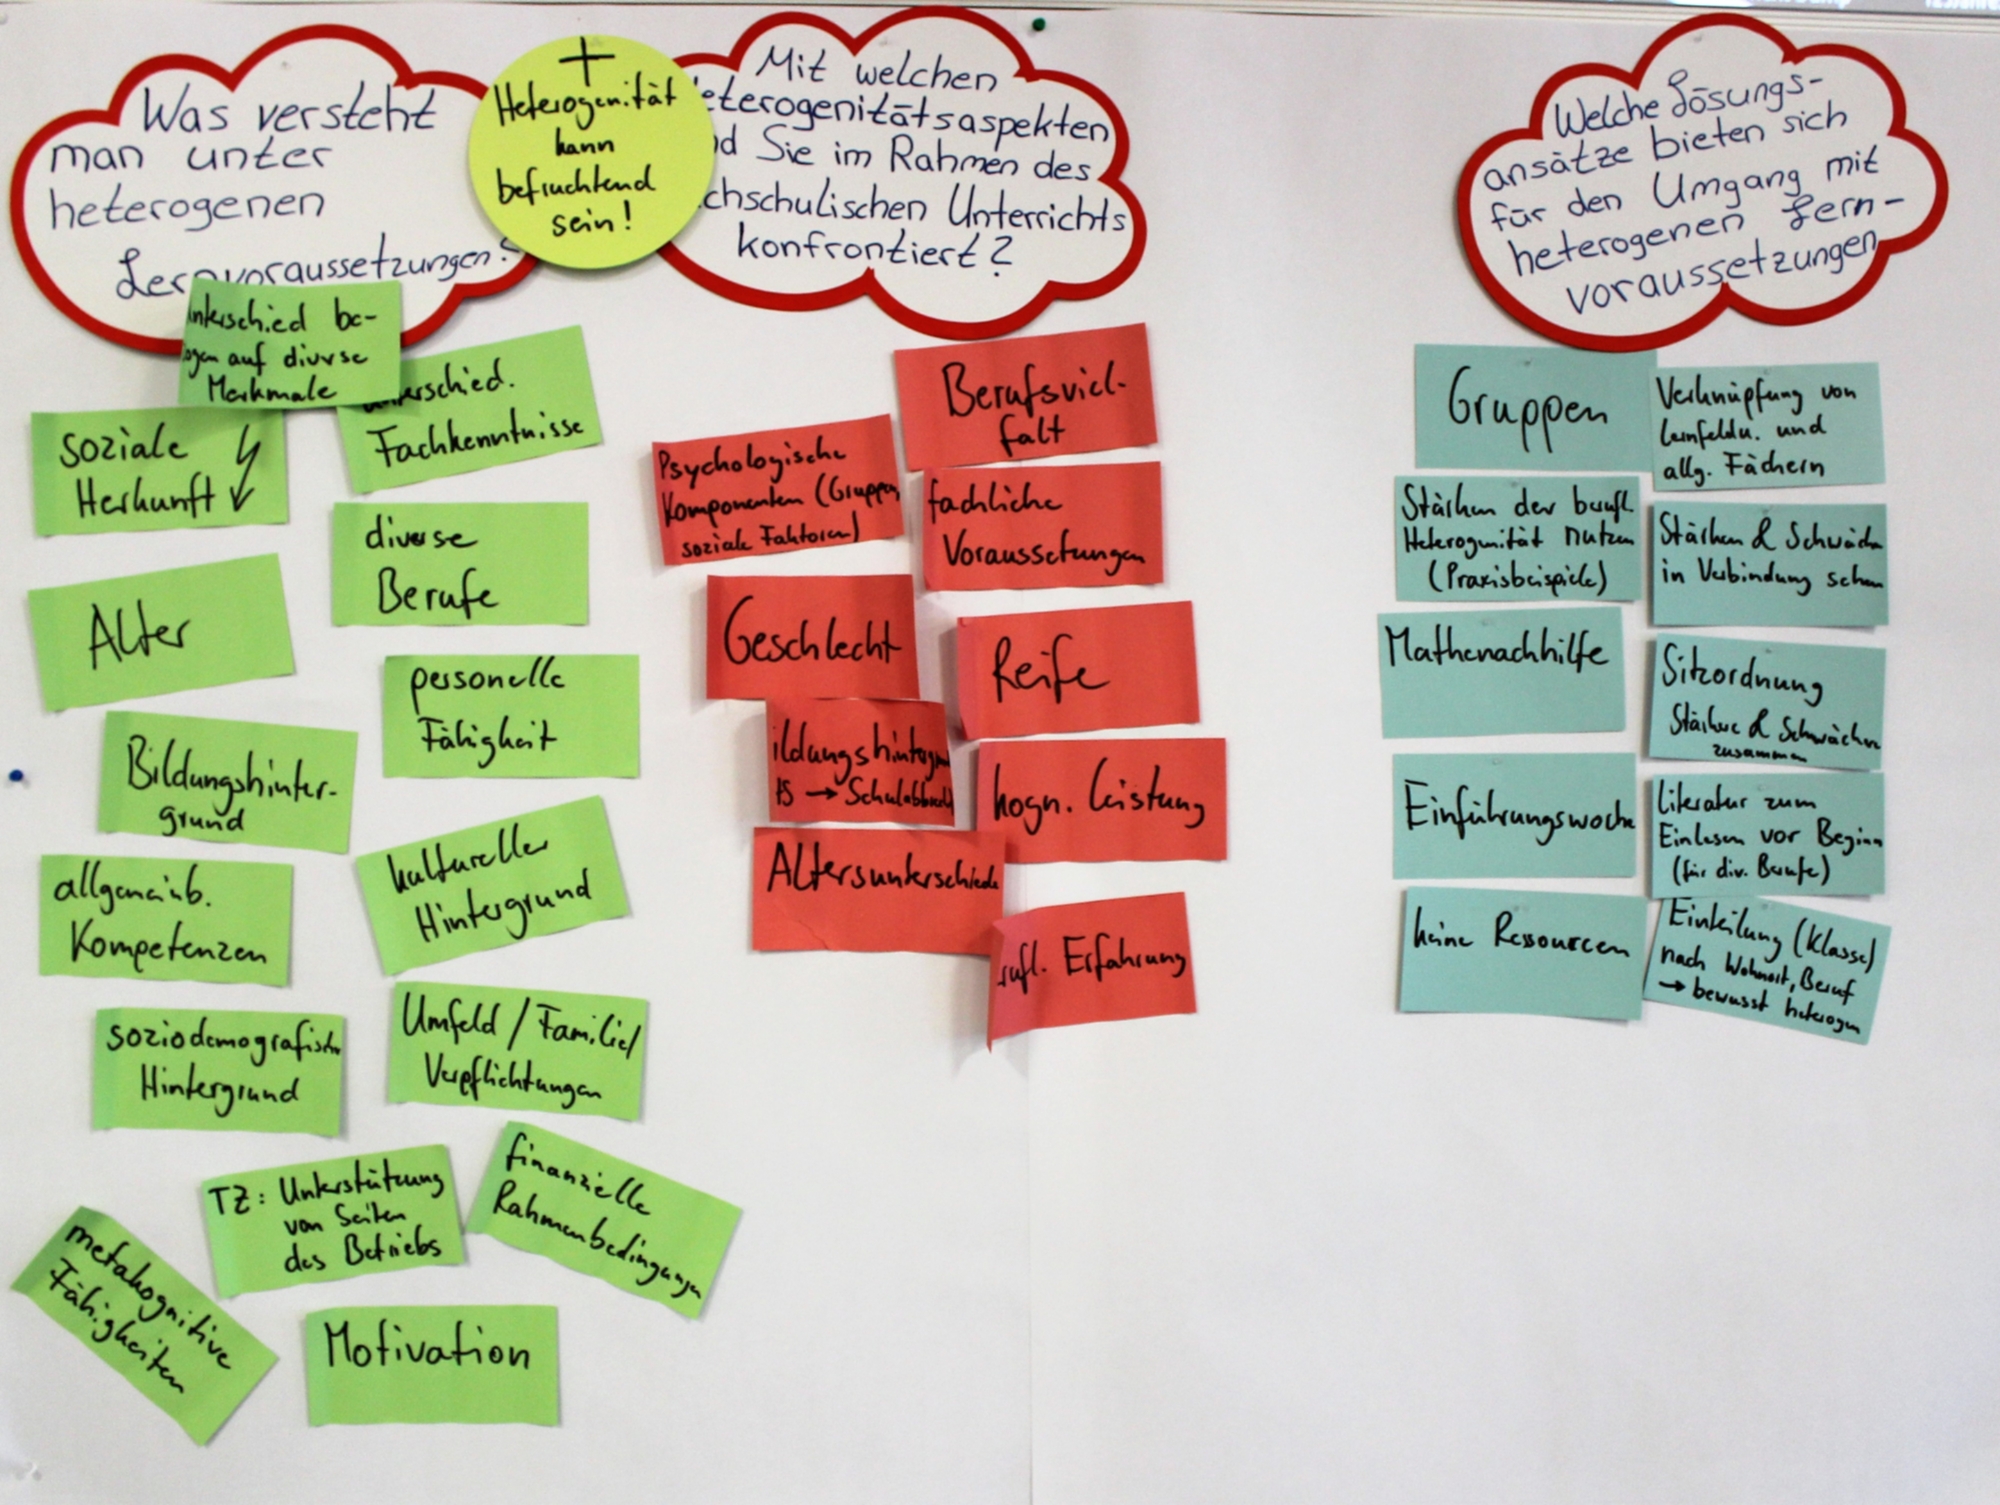 Was versteht
man unter
heterogenen
Lernvoraussetzungen?
+
Heterogenität
kann
befruchtend
sein!
Mit welchen
eterogenitätsaspekten
d Sie im Rahmen des
chschulischen Unterrichts
konfrontiert?
Welche Lösungs-
ansätze bieten sich
für den Umgang mit
heterogenen Lern-
voraussetzungen
nterschied be-
ogen auf diverse
Merkmale
erschied.
Fachkenntnisse
soziale
Herkunft
diverse
Berufe
Alter
personelle
Fähigkeit
Bildungshinter-
grund
kultureller
Hintergrund
allgemeinb.
Kompetenzen
Umfeld / Familie/
Verpflichtungen
soziodemografischer
Hintergrund
TZ: Unterstützung
von Seiten
des Betriebs
finanzielle
Rahmenbedingungen
metakognitive
Fähigkeiten
Motivation
Berufsviel-
falt
Psychologische
Komponenten (Gruppen,
soziale Faktoren)
fachliche
Voraussetzungen
Geschlecht
Reife
ildungshintergrund
tS → Schulabbrecher
kogn. Leistung
Altersunterschiede
rufl. Erfahrung
Gruppen
Verknüpfung von
Lernfeldu. und
allg. Fächern
Stärken der berufl.
Heterogenität nutzen
(Praxisbeispiele)
Stärken & Schwächen
in Verbindung sehen
Mathenachhilfe
Sitzordnung
Stärkere & Schwächere
zusammen
Einführungswoche
Literatur zum
Einlesen vor Beginn
(für div. Berufe)
keine Ressourcen
Einteilung (Klasse)
nach Wohnort, Beruf
→ bewusst heterogen